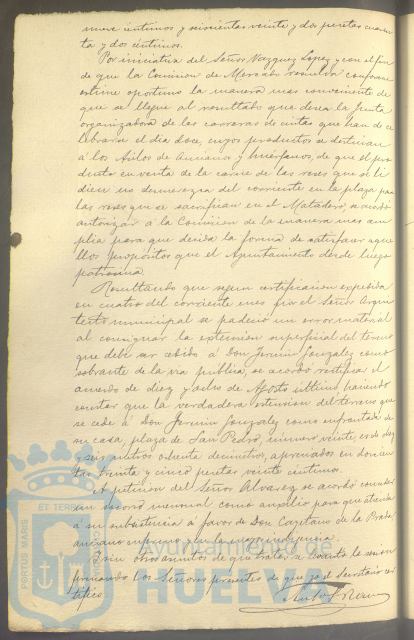 nueve céntimos y seiscientas veinte y dos pesetas cuaren
ta y dos céntimos.
Por iniciativa del Señor Vazquez Lopez y con el fin
de que la Comision de Mercado resuelva conforme
estime oportuno la manera mas conveniente de
que se llegue al resultado que desea la Junta
organizadora de las carreras de cintas que han de ce
lebrarse el dia doce, cuyos productos se destinan
á los Asilos de Ancianos y Huérfanos, de que el pro
ducto en venta de la carne de las reses que se li
dien no desmerezca del corriente en la plaza para
las reses que se sacrifican en el Matadero, se acordó
autorizar á la Comision de la manera mas am
plia para que decida la forma de satisfacer aque
llos propósitos que el Ayuntamiento desde luego
patrocina.
Resultando que segun certificacion expedida
en cuatro del corriente mes por el Señor Arqui
tecto municipal se padeció un error material
al consignar la extension superficial del terreno
que debe ser cedido á Don Jeronimo Gonzalez como
sobrante de la via publica, se acordó rectificar el
acuerdo de diez y ocho de Agosto ultimo haciendo
constar que la verdadera extension del terreno que
se cede á Don Gonzalez como enfrontada de
su casa, plaza de San Pedro, número veinte es de diez
y seis metros ochenta decimetros, apreciados en doscien
tas treinta y cinco pesetas veinte céntimos.
A peticion del Señor Alvarez se acordó conceder
un socorro mensual como auxilio para que atienda
á su subsistencia á favor de Don Cayetano de la Prada
anciano enfermo y en la mayor indigencia.
Y sin otros asuntos de que tratar se levantó la sesion
firmando los Señores presentes de que yo el Secretario cer
tifico
PORTUS MARIS
ET TERRAE
Ayuntamiento de
HUELVA